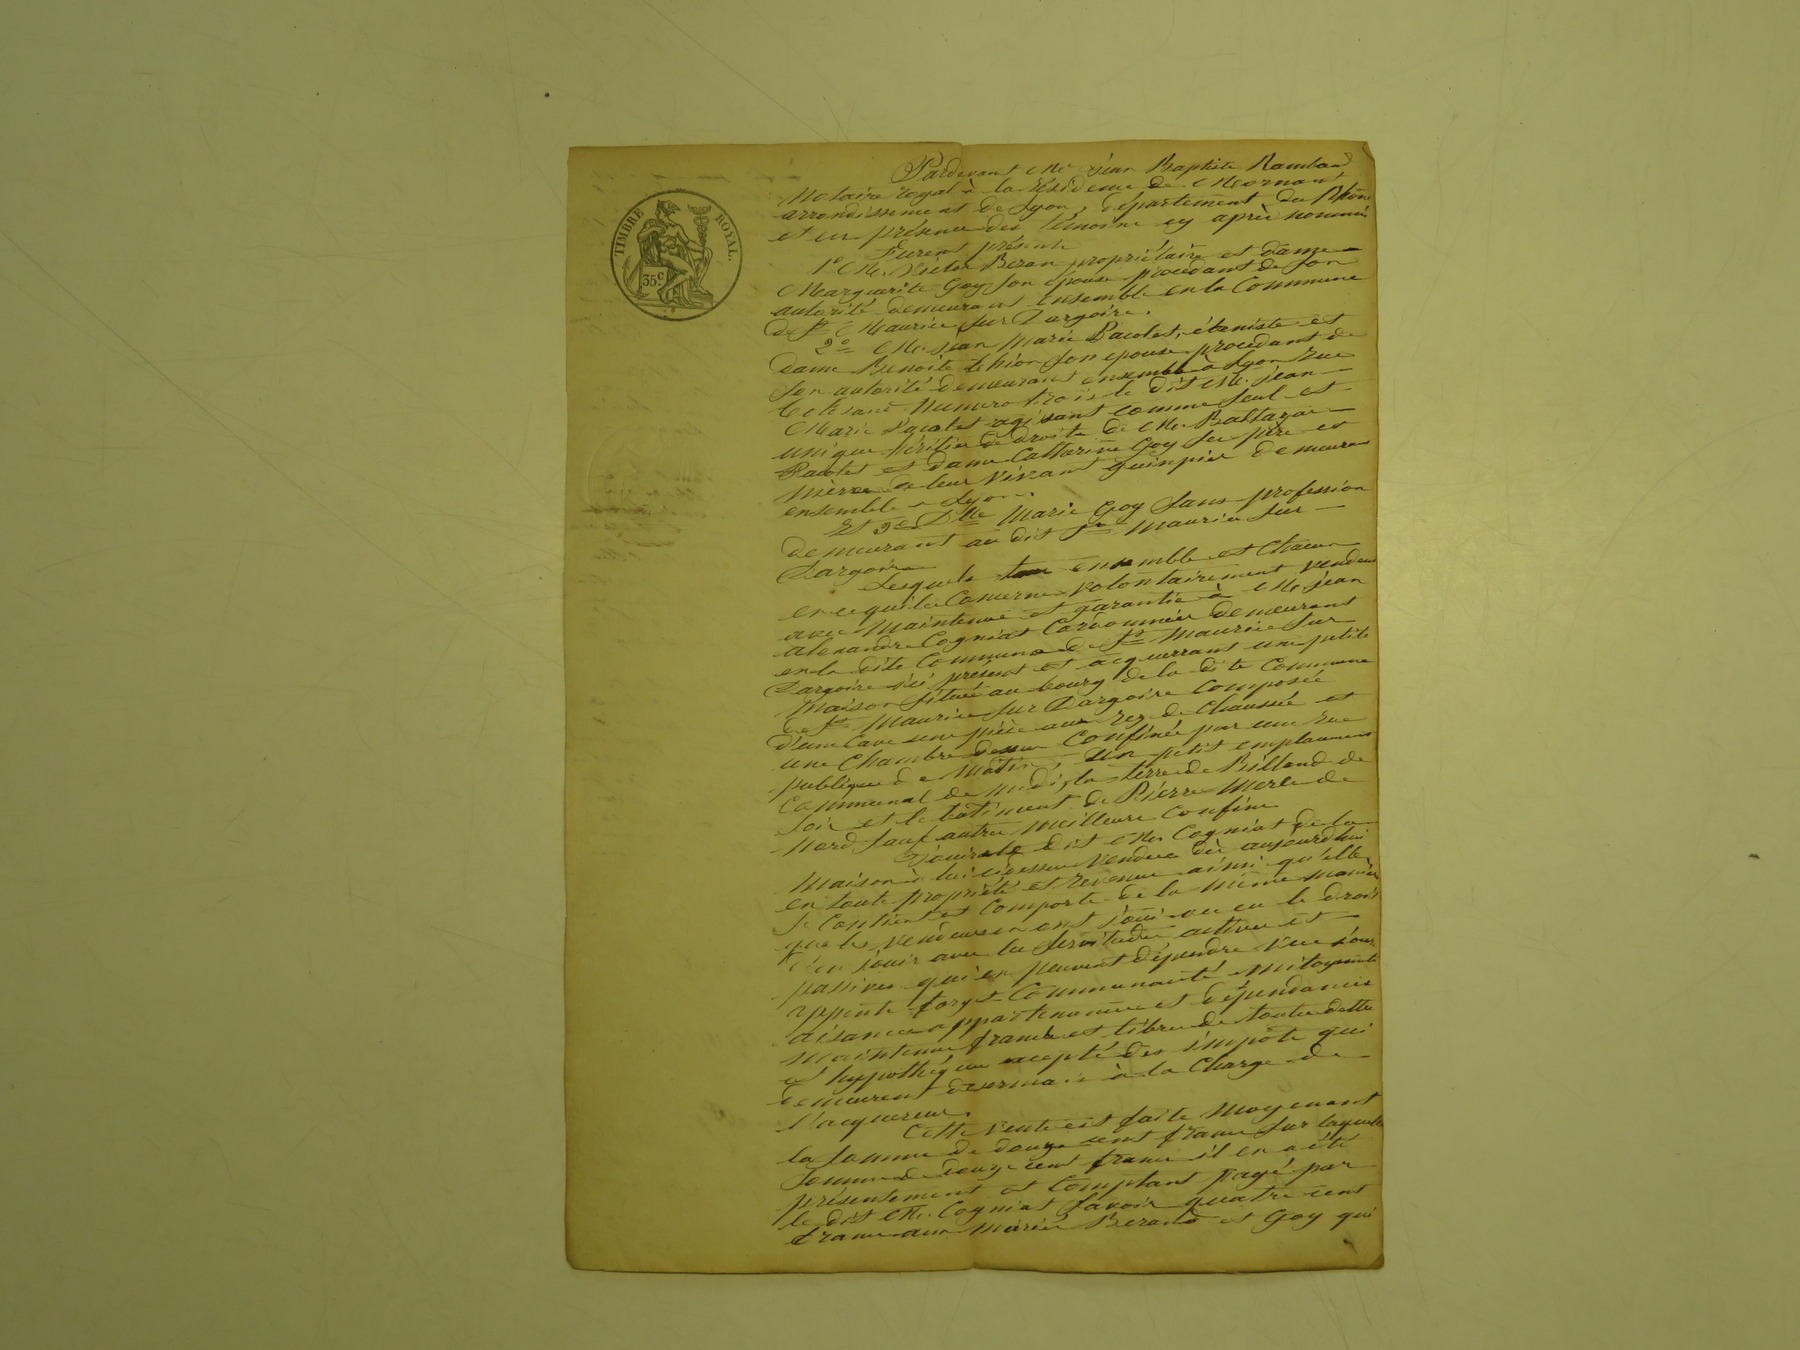 TIMBRE ROYAL.
35 c.
Pardevant Me jean Baptiste Rambaud
Notaire royal à la Résidence de Mornant
arrondissement de Lyon, département du Rhône
et en présence des témoins cy après nommés
Furent présents
1º Mr. Bezan propriétaire et dame
Marguerite Goy son épouse procédant de son
autorité demeurant ensemble en la Commune
de St Maurice sur Dargoire.
2º Mr. jean Marie Pacolet, ébeniste et
dame Benoite son épouse procédant de
son autorité demeurant ensemble à Lyon rue
Numero trois le dit Mr. jean
Marie Pacolet agissant comme seul et
unique héritier de droits de Mr. Baltazar
Pacolet et dame Catherine Goy ses père et
mère de leur vivant guimpier demeurant
ensemble à Lyon.
Et 3º Dlle Marie Goy sans profession
demeurant au dit St Maurice sur
Dargoire
Lesquels ensemble et chacun
en ce qui les concerne volontairement vendent
avec maintenue et garantie à Mr. jean
alexandre Cogniat Cordonnier demeurant
en la dite Commune de St Maurice sur
Dargoire ici présent et acquerrant une petite
maison située au bourg de la dite Commune
de St Maurice sur Dargoire Composée
d'une Cave une pièce aux rez de Chaussée et
une Chambre dessus Confinée par une rue
publique de matin, un petit emplacement
Communal de midi, la terre de Billand de
soir et le bâtiment de Pierre Merle de
Nord sauf autres meilleurs Confins
Jouira le dit Mr. Cogniat de la
maison à lui cidessus vendue dès aujourdhui
en toute propriété et revenus ainsi qu'elle
se Contient et Comporte de la même manière
que les vendeurs en ont joui ou eu le droit
d'en jouir avec les servitudes actives et
passives qui en peuvent dépendre vues jours
Communauté mitoyenneté
aisances appartenances et dépendances
maintenue franche et libre de toutes dettes
et hypothéques excepté des impôts qui
demeurent desormais à la Charge de
l'acquereur.
Cette vente est faite moyenant
la somme de douze cent francs sur laquelle
somme de douze cent francs il en a été
présentement et Comptant payé par
le dit Mr. Cogniat savoir quatre cent
francs aux mariés Bezand et Goy qui